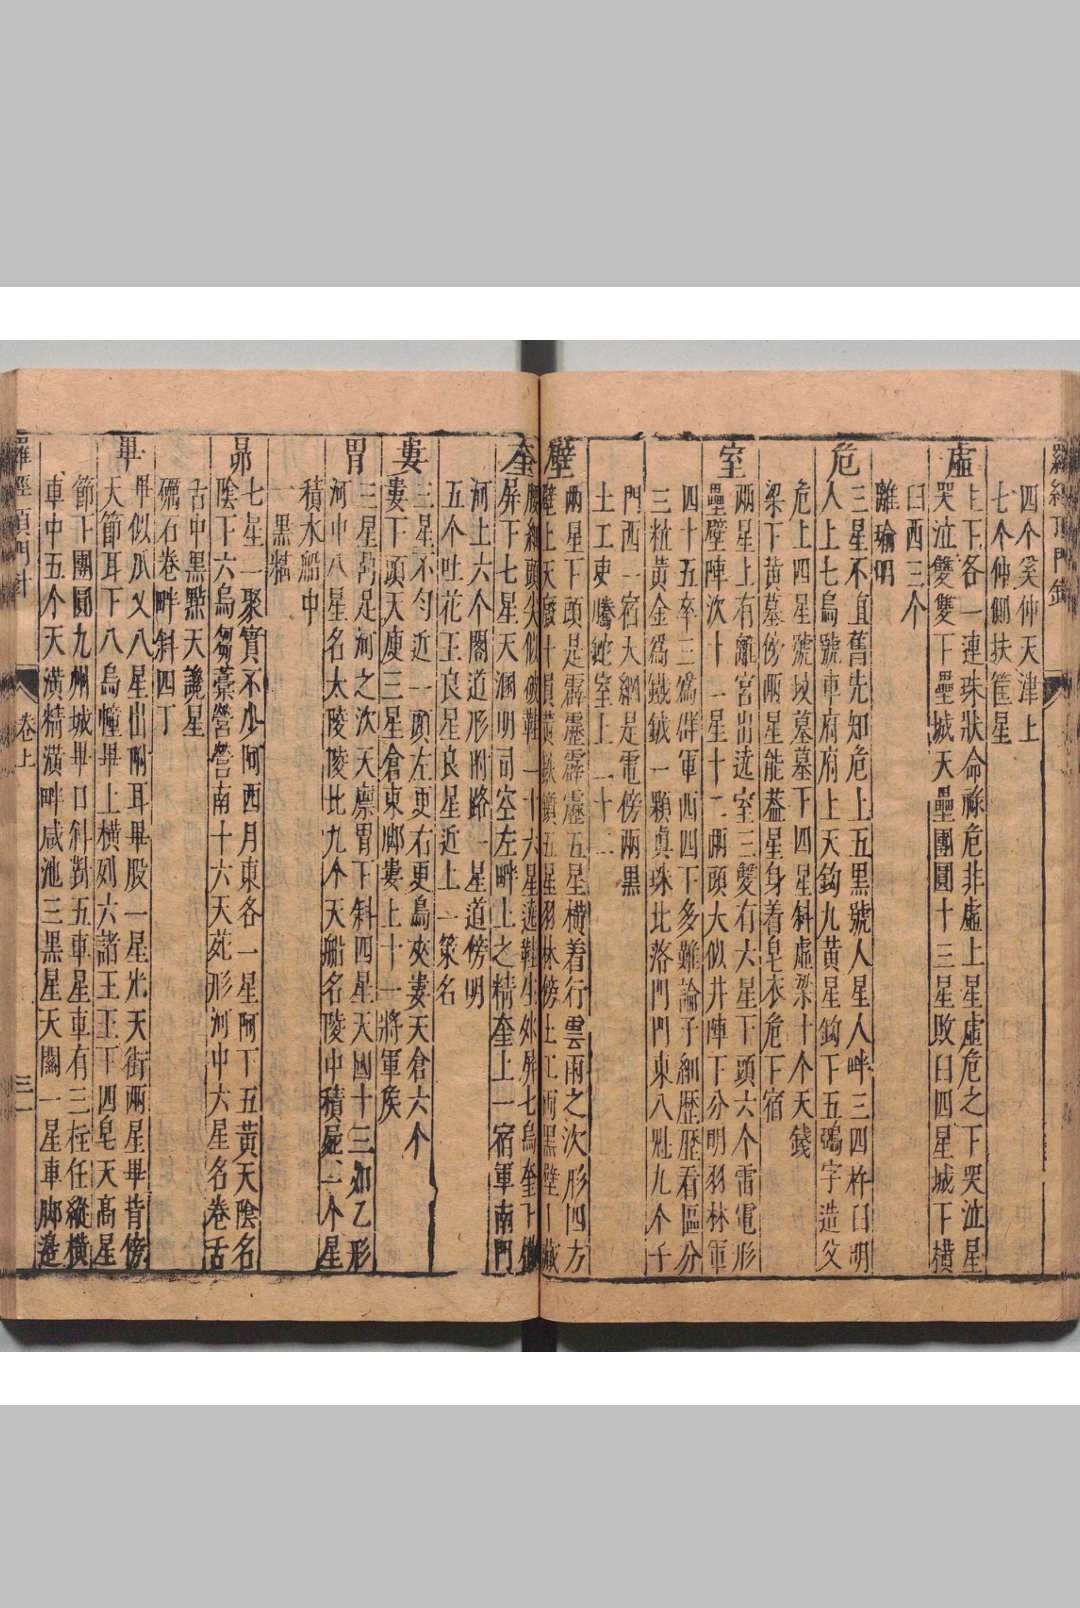 羅經頂門針
四个奚仲天津上
七个仲側扶筐星
虛
上下各一連珠狀命祿危非虛上星虛危之下哭泣星
哭泣雙雙下壘城天壘團圓十三星敗臼四星城下橫
臼西三个
離瑜明
危
三星不直舊先知危上五黑號人星人畔三四杵臼明
人上七烏號車府府上天鈎九黃星鈎下五鵶字造父
危上四星號坟墓墓下四星斜虛梁十个天錢
梁下黃墓傍兩星能蓋星身着皂衣危下宿
室
兩星上有離宮出遶室三雙有六星下頭六个雷電形
壘壁陣次十二星十二兩頭大似井陣下分明羽林軍
四十五卒三爲群軍西四下多難論子細歷歷看區分
三粒黃金爲鐵鉞一顆眞珠北落門門東八魁九个子
門西一宿天綱是電傍兩黑
土工吏騰蛇室上二十二
壁
兩星下頭是霹靂霹靂五星橫着行雲雨之次形四方
壁上天廐十圓黃鈇鑕五星羽林傍土工兩黑壁下藏
奎
腰細頭尖似破鞋一十六星遶鞋生外屏七烏奎下橫
屏下七星天溷明司空左畔上之精奎上一宿軍南門
河上六个閣道形附路一星道傍明
五个吐花王良星良星近上一策名
婁
三星不勻近一頭左更右更烏夾婁天倉六个
婁下頭天庾三星倉東脚婁上十一將軍侯
胃
三星鼎足河之次天廩胃下斜四星天囷十三如乙形
河中八星名大陵陵北九个天船名陵中積屍一个星
積水船中
一黑精
昴
七星一聚實不少阿西月東各一星阿下五黃天陰名
陰下六烏芻藁營營南十六天苑形河中六星名卷舌
古中黑點天讒星
礪石卷畔斜四丁
畢
畢似爪乂八星出附耳畢股一星光天街兩星畢背傍
天節耳下八烏幢畢上橫列六諸王王下四皂天高星
節下團圓九州城畢口斜對五車星車有三柱任縱橫
車中五个天潢精潢畔咸池三黑星天關一星車脚邊
羅經頂門針
卷上
三一